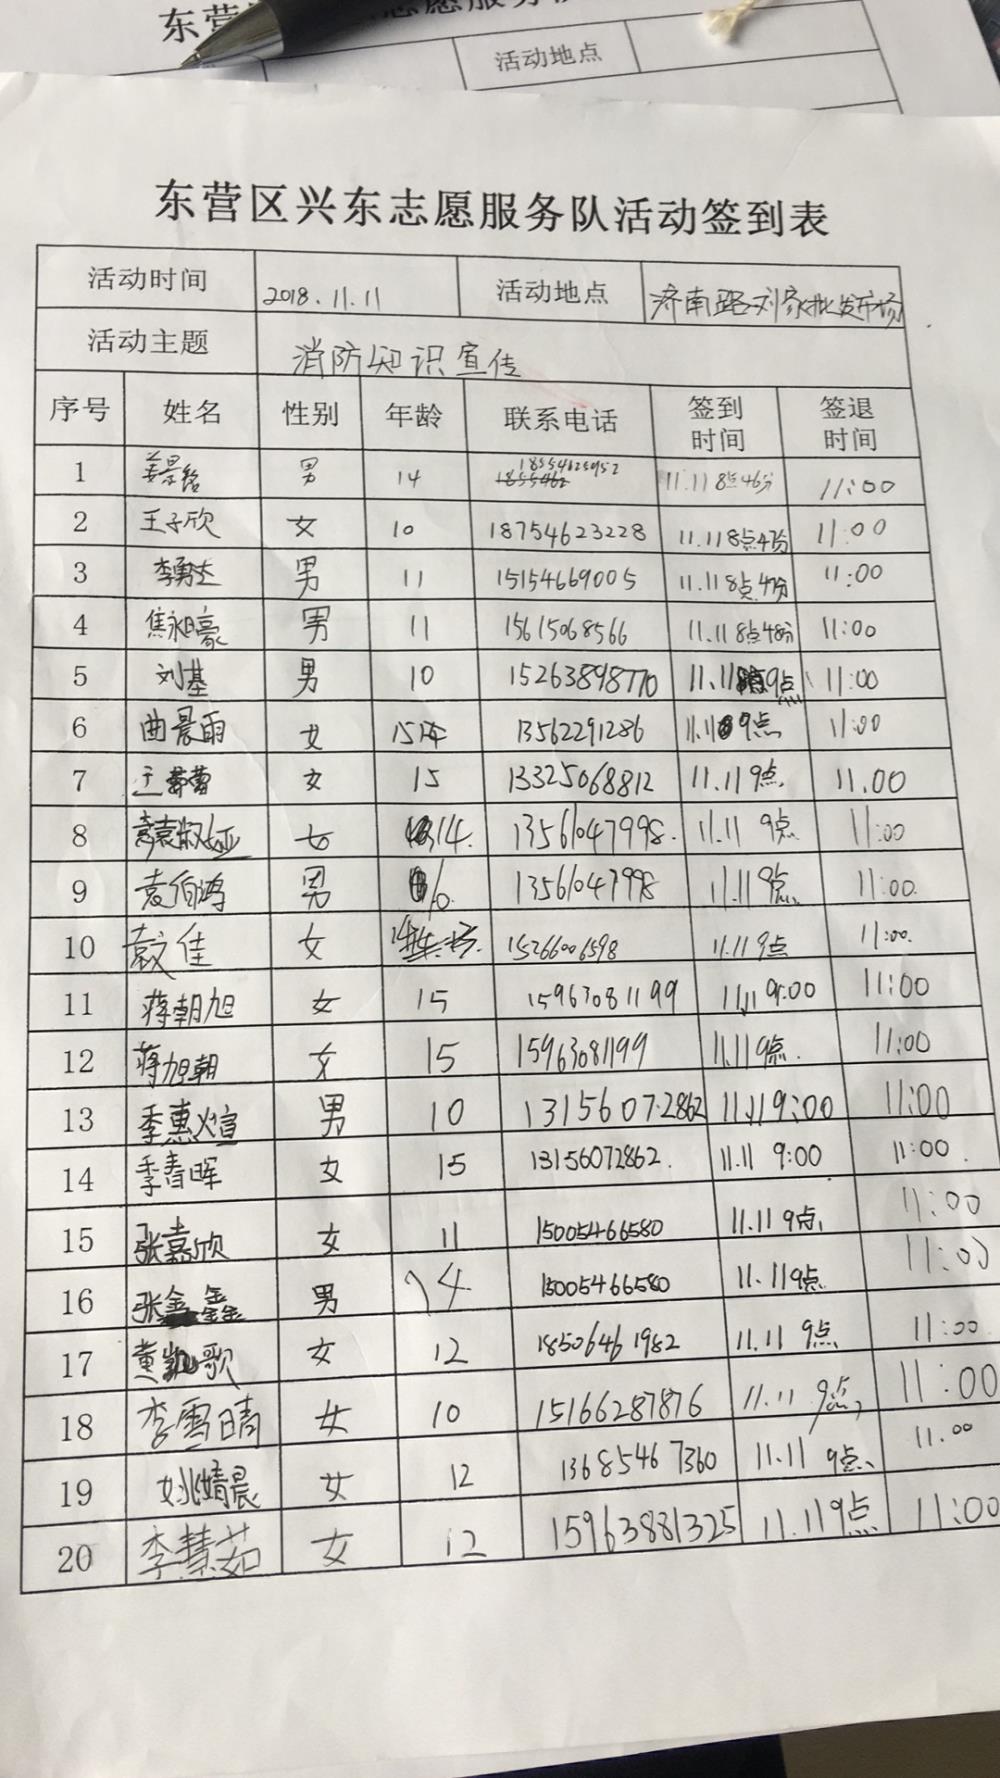 活动地点
东营区兴东志愿服务队活动签到表
活动时间 2018.11.11 活动地点 济南路刘家批发市场
活动主题 消防知识宣传
序号 姓名 性别 年龄 联系电话 签到时间 签退时间
1 姜景铭 男 14 18554625952 11.11 8点46分 11:00
2 王子欣 女 10 18754623228 11.11 8点47分 11:00
3 李勇志 男 11 15154669005 11.11 8点47分 11:00
4 焦昶豪 男 11 15615068566 11.11 8点48分 11:00
5 刘基 男 10 15263898770 11.11 9点 11:00
6 曲晨雨 女 15 13562291286 11.11 9点 11:00
7 女 15 13325068812 11.11 9点 11.00
8 袁淑娅 女 14. 13561047998. 11.11 9点 11:00
9 袁伯鸿 男 13561047998 11.11 9点 11:00
10 佳 女 15266006598 11.11 9点 11:00.
11 蒋朝旭 女 15 15963081199 11.11 9:00 11:00
12 蒋旭朝 女 15 15963081199 11.11 9点. 11:00
13 季惠煊 男 10 13156072862 11.11 9:00 11:00
14 季春晖 女 15 13156072862. 11.11 9:00 11:00.
15 张嘉欣 女 11 15005466580 11.11 9点 11:00
16 张鑫 男 14 15005466580 11.11 9点 11:00
17 黄凯歌 女 12 18506461982 11.11 9点 11:00
18 李雪晴 女 10 15166287876 11.11 9点 11:00
19 姚婧晨 女 12 13685467360 11.11 9点 11.00
20 李慧茹 女 12 15963881325 11.11 9点 11:00